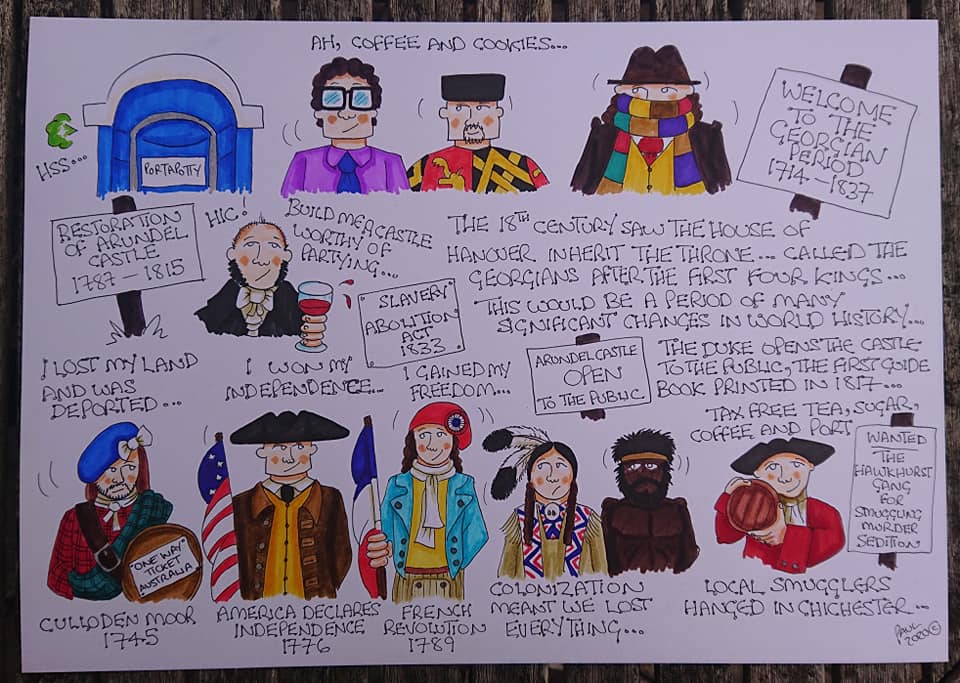 AH, COFFEE AND COOKIES...
HSS...
PORTAPOTTY
WELCOME
TO THE
GEORGIAN
PERIOD
1714.-1837
RESTORATION
OF ARUNDEL
CASTLE
1787-1815
HIC!
BUILD ME A CASTLE
WORTHY OF
PARTYING...
THE 18TH CENTURY SAW THE HOUSE OF
HANOVER INHERIT THE THRONE... CALLED THE
GEORGIANS AFTER THE FIRST FOUR KINGS...
THIS WOULD BE A PERIOD OF MANY
SIGNIFICANT CHANGES IN WORLD HISTORY...
SLAVERY
ABOLITION
ACT
1833
ARUNDEL CASTLE
OPEN
TO THE PUBLIC
THE DUKE OPENS THE CASTLE
TO THE PUBLIC, THE FIRST GUIDE
BOOK PRINTED IN 1817...
I LOST MY LAND
AND WAS
DEPORTED...
I WON MY
INDEPENDENCE...
I GAINED MY
FREEDOM...
TAX FREE TEA, SUGAR,
COFFEE AND PORT
WANTED
THE
HAWKHURST
GANG
FOR
SMUGGLING
MURDER
SEDITION
"ONE WAY"
TICKET
AUSTRALIA
CULLODEN MOOR
1745
AMERICA DECLARES
INDEPENDENCE
1776
FRENCH
REVOLUTION
1789
COLONIZATION
MEANT WE LOST
EVERYTHING...
LOCAL SMUGGLERS
HANGED IN CHICHESTER...
PAUL
2020©